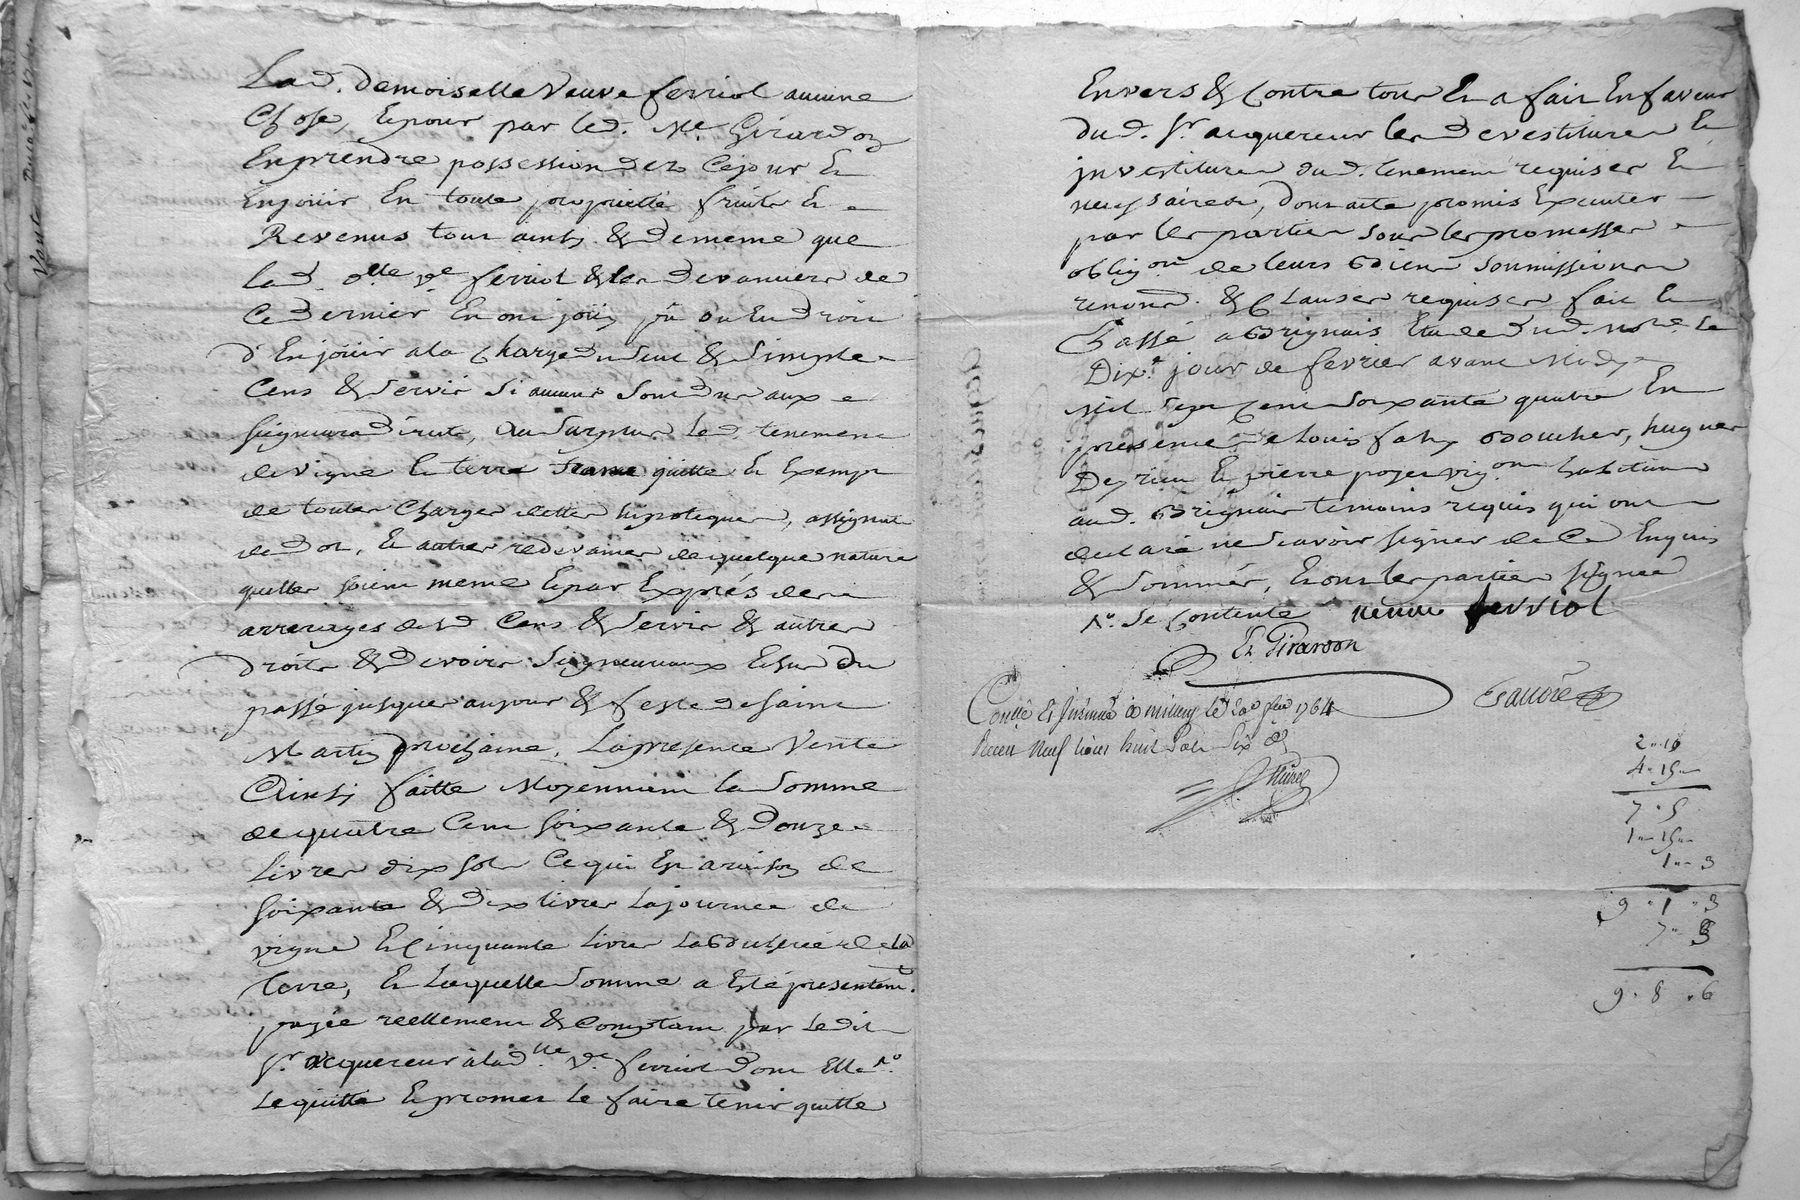 Lad. demoiselle veuve ferriol aucune
Chose, Et pour par led. Me Girardon
En prendre possession dez Ce jour Et
En jouir En toute proprietté fruits Et
Revenus tout ainsy & de meme que
lad. dlle ve ferriol & les devanciers de
Ce dernier En ont jouy pû ou En droit
d'En jouir a la Charge du seul & simple
Cens & servis si aucuns sont dus aux
seigneurs directs, au surplus led. tenement
de vigne Et terre franc quitte Et Exempt
de toutes Charges dettes hipoteques, assignat
de dot, Et autres redevances de quelque nature
quelles soient meme Et par Exprés des
arrerages desd Cens & servis & autres
droits & devoirs seigneuriaux Echus du
passé jusques au jour & feste de saint
Martin prochaine, La presente Vente
Ainsy faitte Moyennant la somme
de quattre Cent soixante & douze
Livres dix sols Ce qui Est a raison de
soixante & dix livres la journée de
vigne Et Cinquante livres la de la
terre, Et Laquelle somme a Eté presentemt.
payée reellement & Comptant par Ledit
sr. acquereur à lad. lle ve. ferriol dont Elle
Le quitte Et promet le faire tenir quitte
Envers & Contre tous Et a fait En faveur
dud. sr. acquereur les devestitures Et
investitures dud. tenement requises Et
necessaires, dont acte promis Executer
par les parties sous les promesses
obligons de leurs biens soumissions
renond. & Clauses requises fait Et
Passé a Brignais Etude dud. nore. Le
Dixe. jour de fevrier avant Midy
Mil sept Cent soixante quatre En
presence de Louis boucher, hugues
Et pierre poyet vigon habitants
aud. Brignais temoins requis qui ont
declaré ne scavoir signer de Ce Enquis
& sommés, Et ont les parties signée
Se Contente veuve ferriol
Et Girardon
Conllé Et Insinué a millery le 20e fev 1764
Receu Neuf livres huit sols six d
2 " 10
4 " 15 "
7 " 5
1 " 15 "
1 " 3
9 " 1 " 3
7 " 3
9 " 8 " 6